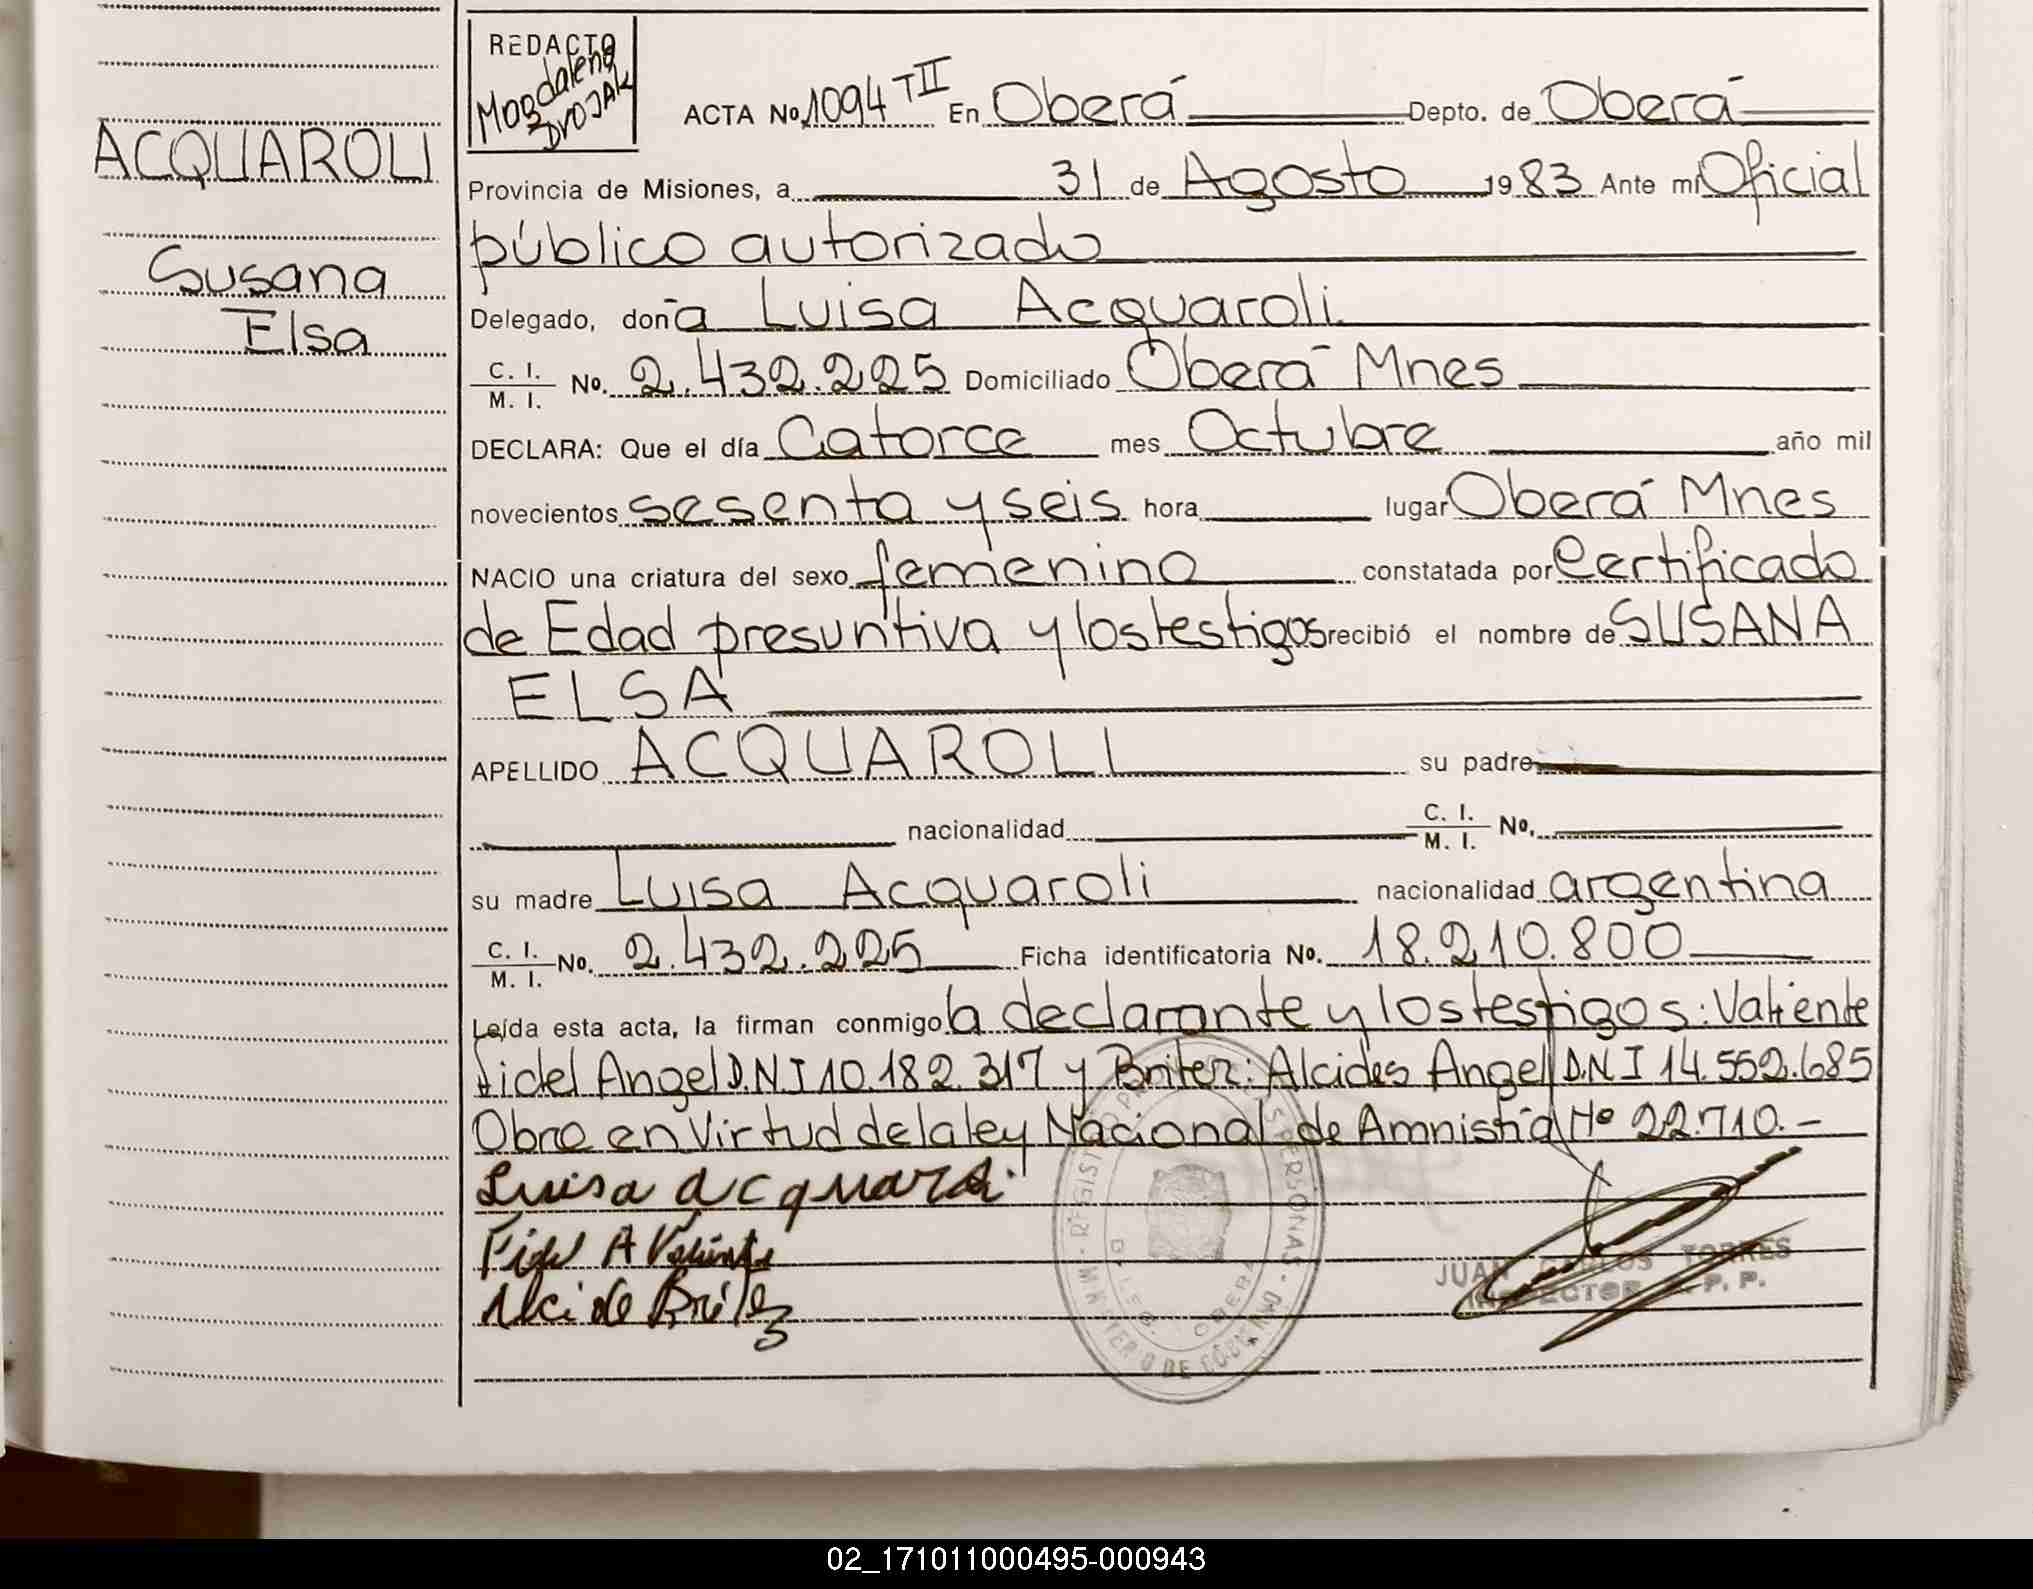 REDACTO
Magdalena
DROJAK
ACTA No. 1094 TII En Oberá Depto. de Oberá
ACQUAROLI
Provincia de Misiones, a 31 de Agosto 1983 Ante mi Oficial
público autorizado
Susana
Elsa
Delegado, doña Luisa Acquaroli
C. I.
M. I. No. 2.432.225 Domiciliado Oberá Mnes
DECLARA: Que el día Catorce mes Octubre año mil
novecientos sesenta y seis hora lugar Oberá Mnes
NACIO una criatura del sexo femenino constatada por Certificado
de Edad presuntiva y los testigos recibió el nombre de SUSANA
ELSA
APELLIDO ACQUAROLI su padre
nacionalidad C. I.
M. I. No.
su madre Luisa Acquaroli nacionalidad argentina
C. I.
M. I. No. 2.432.225 Ficha identificatoria No. 18.210.800
Leída esta acta, la firman conmigo la declarante y los testigos: Valiente
Fidel Angel D.N.I 10.182.317 y Britez: Alcides Angel D.N.I 14.552.685
Obra en Virtud de la ley Nacional de Amnistía Nº 22.710.-
Luisa acquaroli
Fidel A Valiente
Alcide Brítez
REGISTRO PERSONAS
MINISTERIO DE GOBIERNO
DELEG. OBERA
JUAN CARLOS TORRES
INSPECTOR R. P. P.
02_171011000495-000943